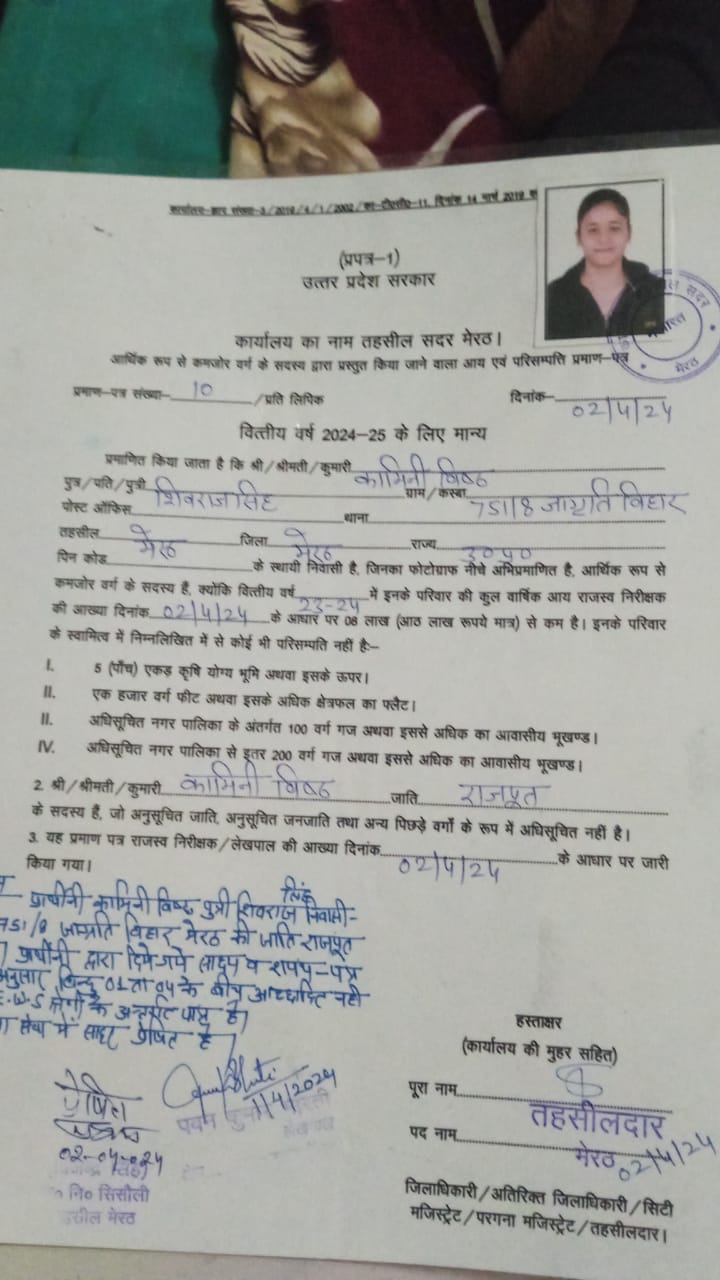 कार्यालय-ज्ञाप संख्या-3/2019/4/1/2002/का-टीसी-11, दिनांक 14 मार्च 2019 का
(प्रपत्र-1)
उत्तर प्रदेश सरकार
कार्यालय का नाम तहसील सदर मेरठ।
आर्थिक रूप से कमजोर वर्ग के सदस्य द्वारा प्रस्तुत किया जाने वाला आय एवं परिसम्पत्ति प्रमाण-पत्र
सदर
मेरठ
प्रमाण-पत्र संख्या- 10 /प्रति लिपिक दिनांक- 02/4/24
वित्तीय वर्ष 2024-25 के लिए मान्य
प्रमाणित किया जाता है कि श्री/श्रीमती/कुमारी कामिनी बिष्ट
पुत्र/पति/पुत्री शिवराज सिंह ग्राम/कस्बा 751/8 जागृति विहार
पोस्ट ऑफिस थाना
तहसील मेरठ जिला मेरठ राज्य उ०प्र०
पिन कोड के स्थायी निवासी है, जिनका फोटोग्राफ नीचे अभिप्रमाणित है, आर्थिक रूप से
कमजोर वर्ग के सदस्य हैं, क्योंकि वित्तीय वर्ष 23-24 में इनके परिवार की कुल वार्षिक आय राजस्व निरीक्षक
की आख्या दिनांक 02/4/24 के आधार पर 08 लाख (आठ लाख रूपये मात्र) से कम है। इनके परिवार
के स्वामित्व में निम्नलिखित में से कोई भी परिसम्पति नहीं है:-
I. 5 (पाँच) एकड़ कृषि योग्य भूमि अथवा इसके ऊपर।
II. एक हजार वर्ग फीट अथवा इसके अधिक क्षेत्रफल का फ्लैट।
II. अधिसूचित नगर पालिका के अंतर्गत 100 वर्ग गज अथवा इससे अधिक का आवासीय भूखण्ड।
IV. अधिसूचित नगर पालिका से इतर 200 वर्ग गज अथवा इससे अधिक का आवासीय भूखण्ड।
2. श्री/श्रीमती/कुमारी कामिनी बिष्ट जाति राजपूत
के सदस्य हैं, जो अनुसूचित जाति, अनुसूचित जनजाति तथा अन्य पिछड़े वर्गो के रूप में अधिसूचित नहीं है।
3. यह प्रमाण पत्र राजस्व निरीक्षक/लेखपाल की आख्या दिनांक 02/4/24 के आधार पर जारी
किया गया।
प्रार्थीनी कामिनी बिष्ट पुत्री शिवराज सिंह निवासी-
751/8 जाग्रति विहार मेरठ की जाति राजपूत
प्रार्थीनी द्वारा दिये गये साक्ष्य व शपथ-पत्र
अनुसार बिन्दु 01 ता 04 के बीच आच्छादित नही
E.W.S श्रेणी के अन्तर्गत पात्र है।
सेवा में सादर प्रेषित है
हस्ताक्षर
(कार्यालय की मुहर सहित)
पूरा नाम
तहसीलदार
पद नाम मेरठ 02/4/24
जिलाधिकारी/अतिरिक्त जिलाधिकारी/सिटी
मजिस्ट्रेट/परगना मजिस्ट्रेट/तहसीलदार।
प्रेषित
1/4/2024
02-04-024
नि० सिसौली
मेरठ